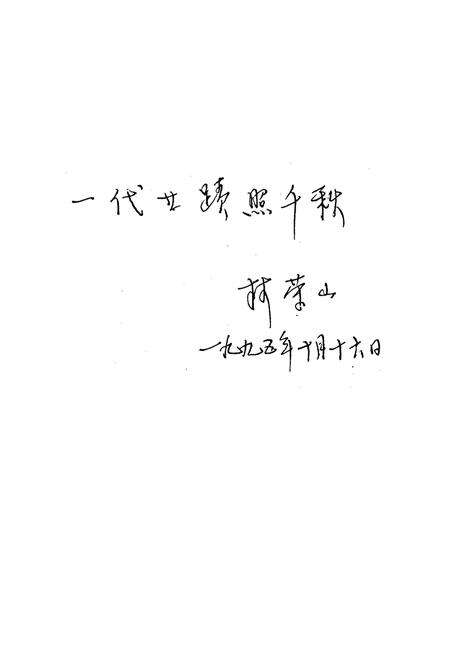 一代艹蹟照千秋
林荣山
一九九五年十月十六日